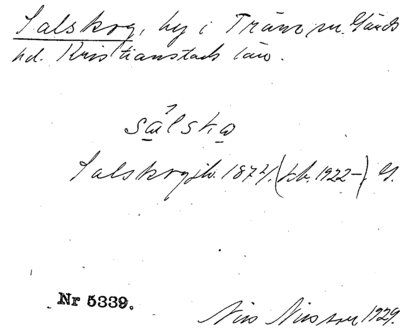 Salskog, by i Träne sn. Gärds
hd. Kristianstads län.
sa̱lska̱
Salskog jb. 1872. (jb. 1922–) G.
Nr 5339.
Nils Nilsson 1929.